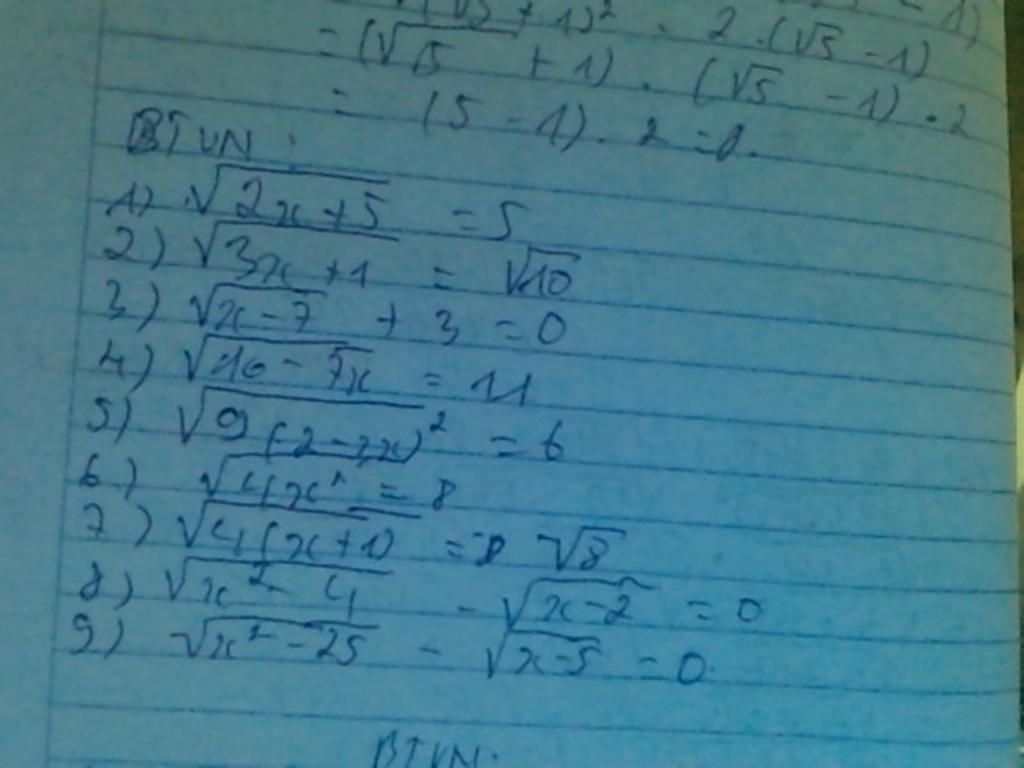 (√5 + 1)² . 2.(√5 - 1)
= (√5 + 1) . (√5 - 1) . 2
= (5 - 1) . 2 = 8.
BTVN:
1) √(2x+5) = 5
2) √(3x+1) = √10
3) √(x-7) + 3 = 0
4) √(16 - 7x) = 11
5) √(9(2-3x)²) = 6
6) √(4x²) = 8
7) √(4(x+1)) = √8
8) √(x² - 4) - √(x-2) = 0
9) √(x² - 25) - √(x-5) = 0.
BTVN: